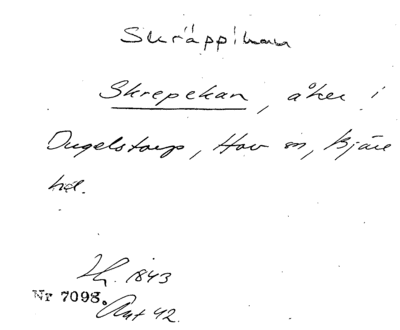 Skräppikan
Skrepekan, åker i
Dugelstorp, Hov sn, Bjäre
hd.
1843
Nr 7098. Ant 42.